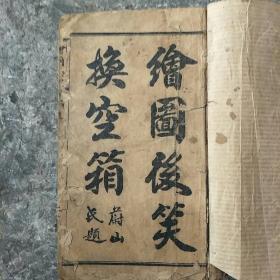 繪圖後笑
換空箱
蔚山
氏題